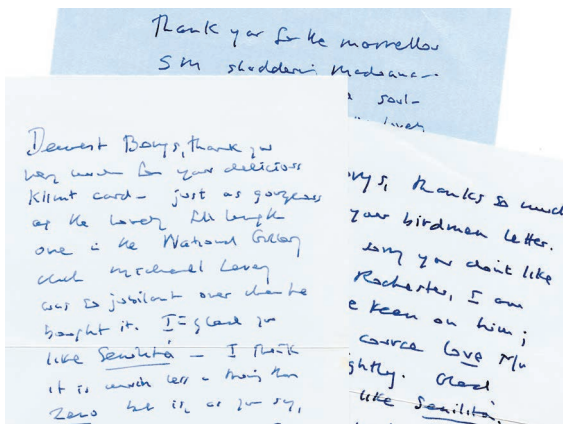 Thank you for the marvellous
SM shuddering Madonna -
soul -
lovely
Dearest Borys, thank you
very much for your delicious
Klimt card - just as gorgeous
as the lovely full length
one in the National Gallery
which Michael Levey
was so jubilant over when he
bought it. I'm glad you
like Senilità - I think
it is much less a thing than
Zeno but is, as you say,
orys, thanks so much
your birdman letter.
sorry you don't like
Rochester, I am
e keen on him;
course love Mr
ightly. Glad
like Senilità.